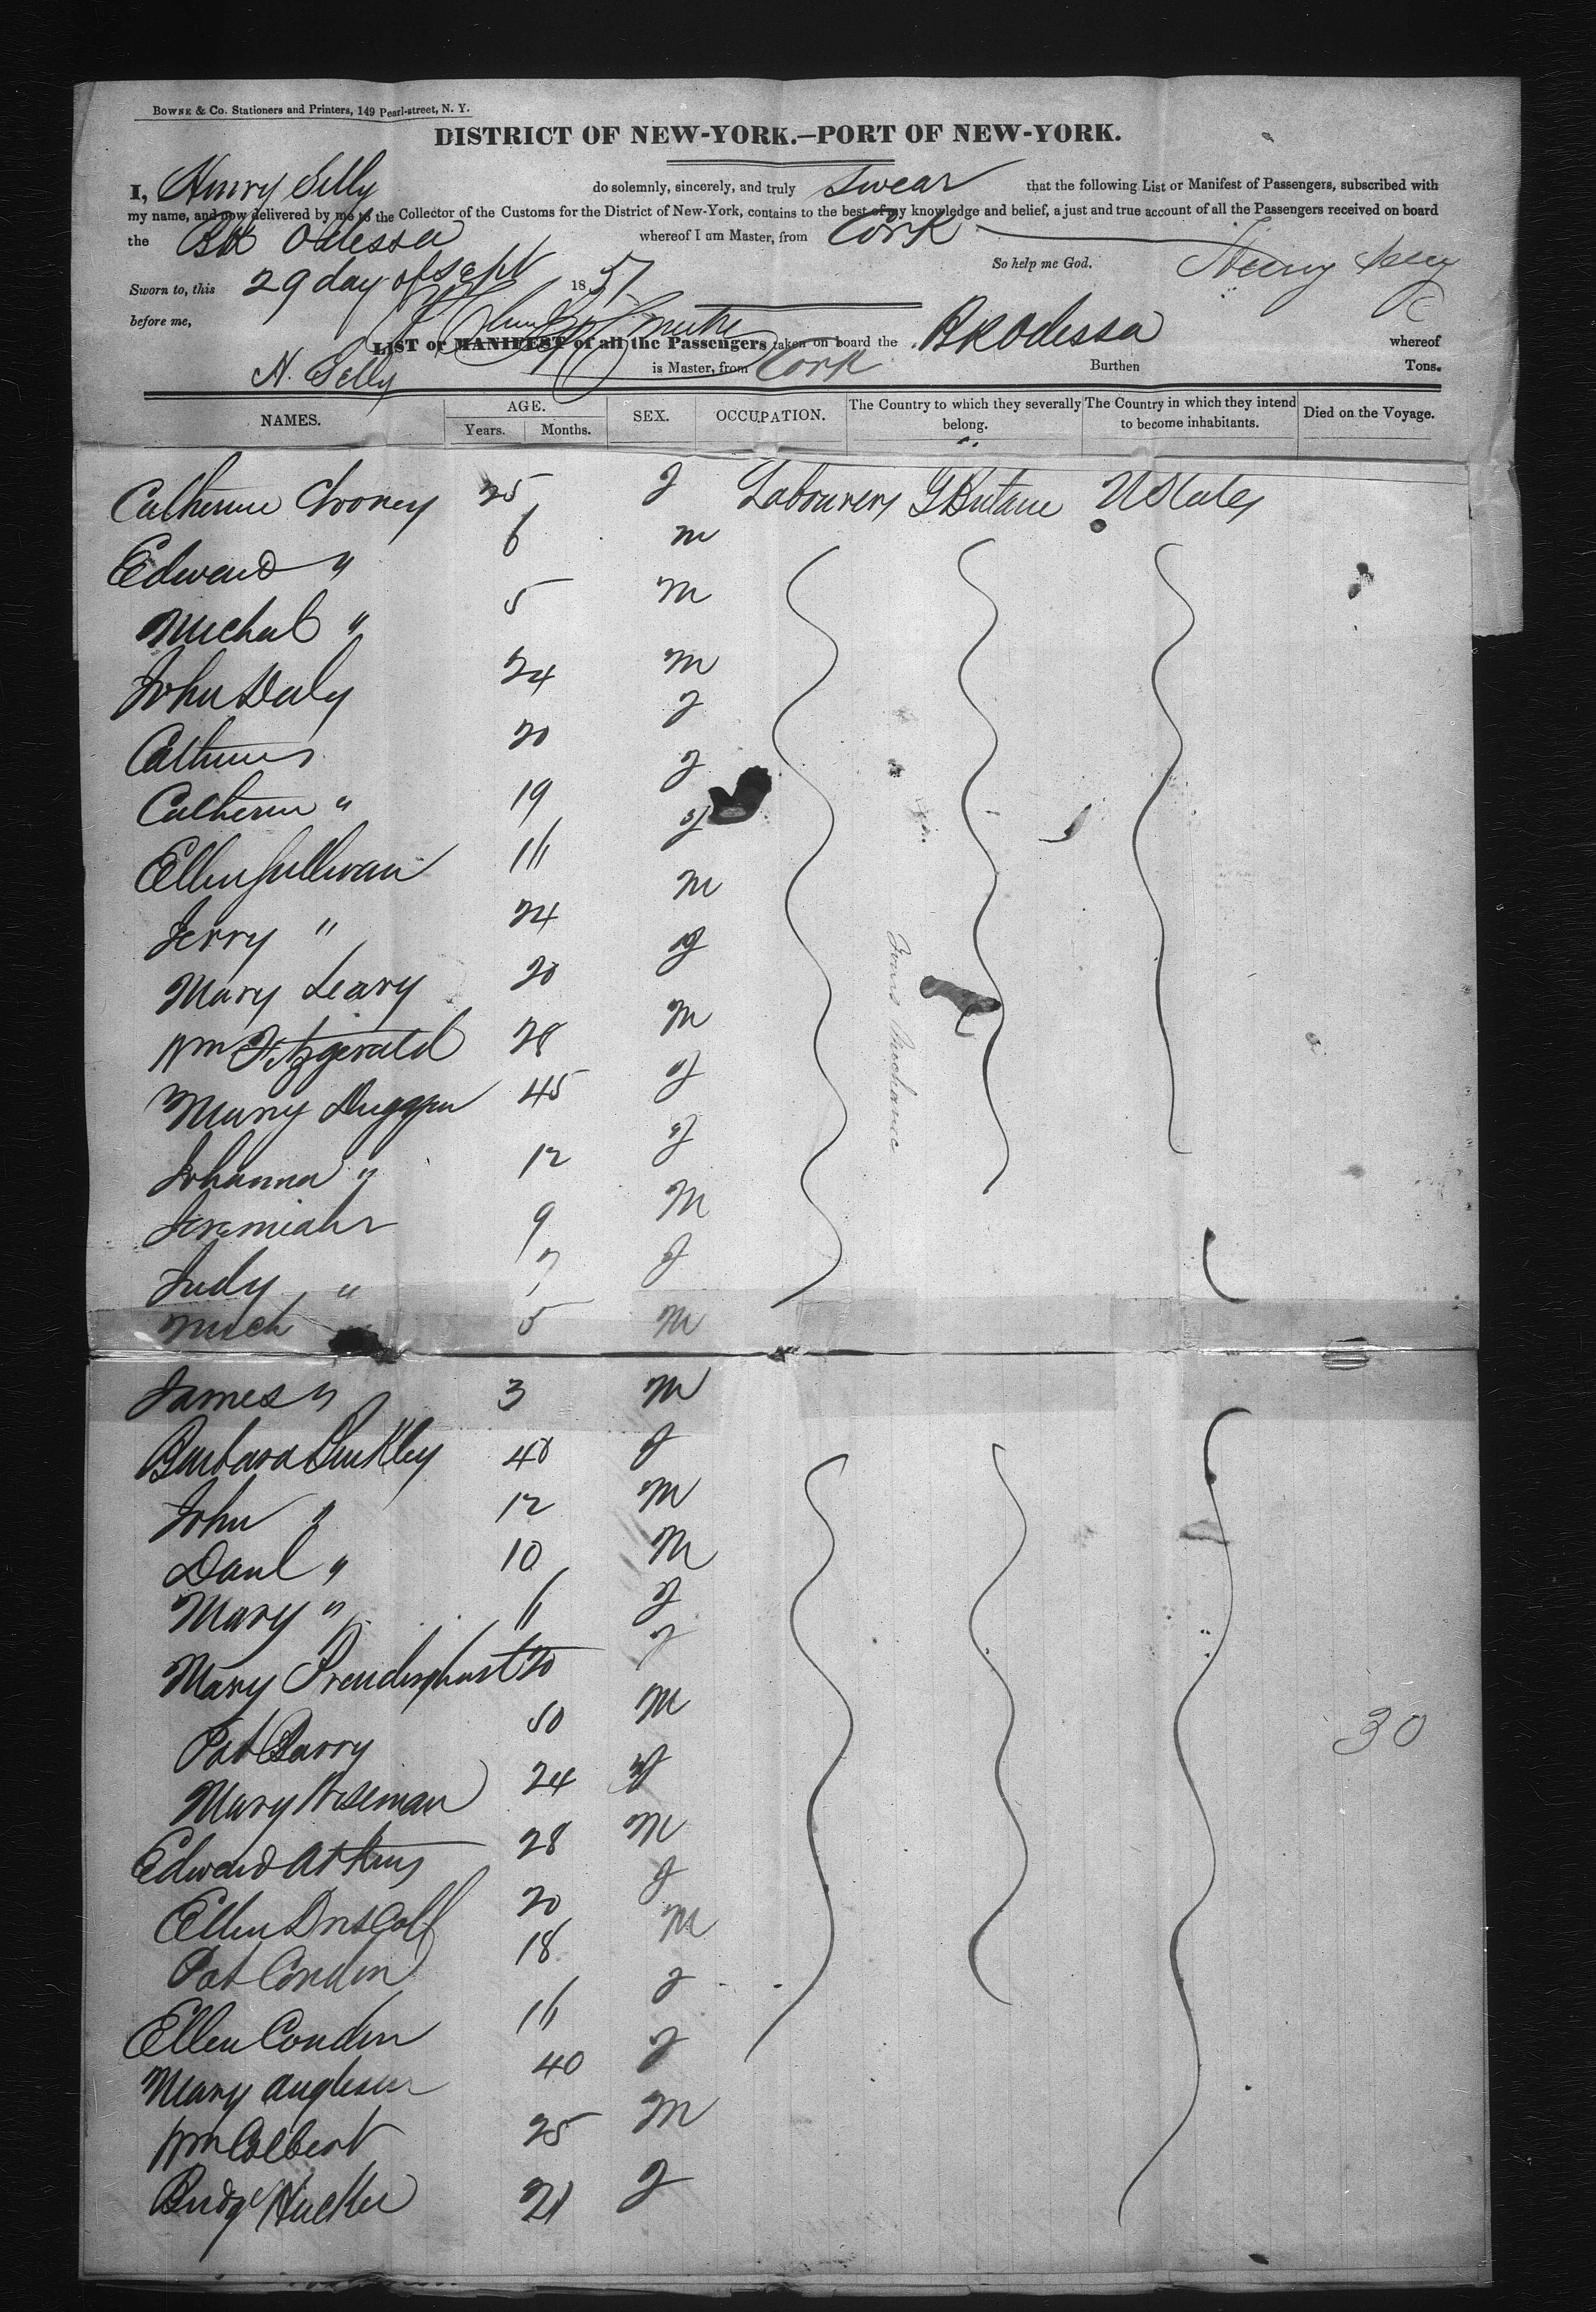 BOWNE & Co. Stationers and Printers, 149 Pearl-street, N. Y.
DISTRICT OF NEW-YORK.—PORT OF NEW-YORK.
I, Henry Selly do solemnly, sincerely, and truly Swear that the following List or Manifest of Passengers, subscribed with
my name, and now delivered by me to the Collector of the Customs for the District of New-York, contains to the best of my knowledge and belief, a just and true account of all the Passengers received on board
the Bk Odessa whereof I am Master, from Cork
So help me God. Henry Selly
Sworn to, this 29 day of Sept 1851
before me,
LIST or MANIFEST of all the Passengers taken on board the Bk Odessa whereof
H. Selly is Master, from Cork Burthen Tons.
NAMES. AGE. SEX. OCCUPATION. The Country to which they severally belong. The Country in which they intend to become inhabitants. Died on the Voyage.
Years. Months.
Catherine 25 f Labourers G Britane U States
Edward " 6 m
Michal " 5 m
John Daly 24 m
20 f
Catherin " 19 f
Ellen Sullivan 16 f
Jerry " 24 m
Mary Leary 20 f
Wm Fitzgerald 28 m
Mary Duggan 45 f
Johanna " 12 f
Jeremiah 9 m
Judy " 7 f
Mich 5 m
James " 3 m
Barbara Buckley 40 f
John " 12 m
Danl " 10 m
Mary " 6 f
Mary 20 f
Pat Barry 50 m
Mary Wiseman 24 f
Edward Atkins 28 m
Ellen Driscoll 20 f
Pat Condon 18 m
Ellen Condon 16 f
Mary 40 f
Wm Colbert 25 m
Bridge 21 f
30